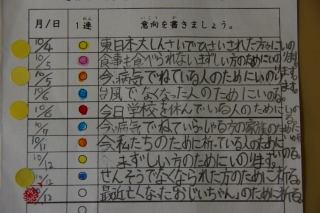 月/日 1連 意向を書きましょう。
10/4 東日本大しんさいでひさいされた方々にいのります
10/5 食事も食べられないまずしい方のためにいのります
10/5 今、病気でねている人のためにいのります
10/6 台風でなくなった人のためにいのる。
10/6 今日学校を休んでいる人のためにいのる
今、病気でねていらっしゃる方の家族のため
10/11 今私たちのために祈っている人のために
10/12 まずしい方のためにいのります
10/12 せんそうでなくなられた方のために祈る。
10/12 最近亡くなったおじいちゃんのために祈る。